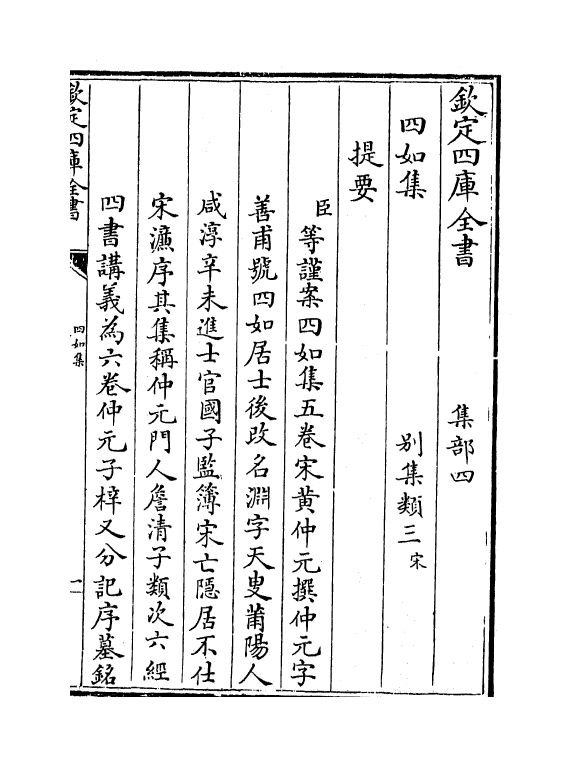 欽定四庫全書 集部四
四如集 別集類三宋
提要
臣等謹案四如集五卷宋黃仲元撰仲元字
善甫號四如居士後改名淵字天叟莆陽人
咸淳辛未進士官國子監簿宋亡隱居不仕
宋濂序其集稱仲元門人詹清子類次六經
四書講義為六卷仲元子梓又分記序墓銘
欽定四庫全書
四如集
一